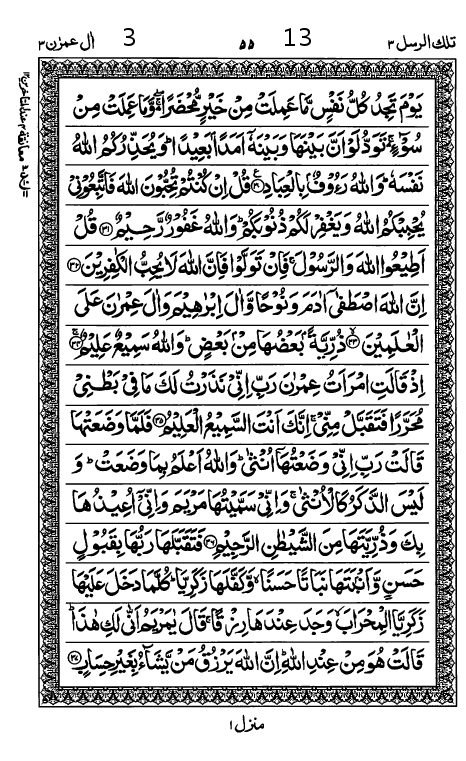 تلك الرسل ٣ 13 ٥٥ 3 اٰل عمرٰن ٣
يَوْمَ تَجِدُ كُلُّ نَفْسٍ مَّا عَمِلَتْ مِنْ خَيْرٍ مُّحْضَرًا ۛۖۚ وَّمَا عَمِلَتْ مِنْ
سُوْٓءٍ ۛۚ تَوَدُّ لَوْ اَنَّ بَيْنَهَا وَبَيْنَهٗٓ اَمَدًۢا بَعِيْدًا ؕ وَيُحَذِّرُكُمُ اللّٰهُ
نَفْسَهٗ ؕ وَاللّٰهُ رَءُوْفٌۢ بِالْعِبَادِ ۟۳۰ قُلْ اِنْ كُنْتُمْ تُحِبُّوْنَ اللّٰهَ فَاتَّبِعُوْنِيْ
يُحْبِبْكُمُ اللّٰهُ وَيَغْفِرْ لَكُمْ ذُنُوْبَكُمْ ؕ وَاللّٰهُ غَفُوْرٌ رَّحِيْمٌ ۳۱ قُلْ
اَطِيْعُوا اللّٰهَ وَالرَّسُوْلَ ۚ فَاِنْ تَوَلَّوْا فَاِنَّ اللّٰهَ لَا يُحِبُّ الْكٰفِرِيْنَ ۳۲
اِنَّ اللّٰهَ اصْطَفٰٓى اٰدَمَ وَنُوْحًا وَّاٰلَ اِبْرٰهِيْمَ وَاٰلَ عِمْرٰنَ عَلَى
الْعٰلَمِيْنَ ۳۳ۙ ذُرِّيَّةًۢ بَعْضُهَا مِنْۢ بَعْضٍ ؕ وَاللّٰهُ سَمِيْعٌ عَلِيْمٌ ۳۴ۚ
اِذْ قَالَتِ امْرَاَتُ عِمْرٰنَ رَبِّ اِنِّيْ نَذَرْتُ لَكَ مَا فِيْ بَطْنِيْ
مُحَرَّرًا فَتَقَبَّلْ مِنِّيْ ۚ اِنَّكَ اَنْتَ السَّمِيْعُ الْعَلِيْمُ ۳۵ فَلَمَّا وَضَعَتْهَا
قَالَتْ رَبِّ اِنِّيْ وَضَعْتُهَآ اُنْثٰى ؕ وَاللّٰهُ اَعْلَمُ بِمَا وَضَعَتْ ؕ وَ
لَيْسَ الذَّكَرُ كَالْاُنْثٰى ۚ وَاِنِّيْ سَمَّيْتُهَا مَرْيَمَ وَاِنِّيْٓ اُعِيْذُهَا
بِكَ وَذُرِّيَّتَهَا مِنَ الشَّيْطٰنِ الرَّجِيْمِ ۳۶ فَتَقَبَّلَهَا رَبُّهَا بِقَبُوْلٍ
حَسَنٍ وَّاَنْۢبَتَهَا نَبَاتًا حَسَنًا ۙ وَّكَفَّلَهَا زَكَرِيَّا ؕ كُلَّمَا دَخَلَ عَلَيْهَا
زَكَرِيَّا الْمِحْرَابَ ۙ وَجَدَ عِنْدَهَا رِزْقًا ۚ قَالَ يٰمَرْيَمُ اَنّٰى لَكِ هٰذَا ؕ
قَالَتْ هُوَ مِنْ عِنْدِ اللّٰهِ ؕ اِنَّ اللّٰهَ يَرْزُقُ مَنْ يَّشَآءُ بِغَيْرِ حِسَابٍ ۳۷
منزل ١